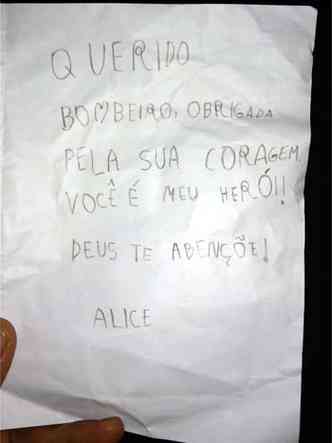 QUERIDO
BOMBEIRO, OBRIGADA
PELA SUA CORAGEM
VOCÊ É MEU HERÓI!
DEUS TE ABENÇÕE!
ALICE